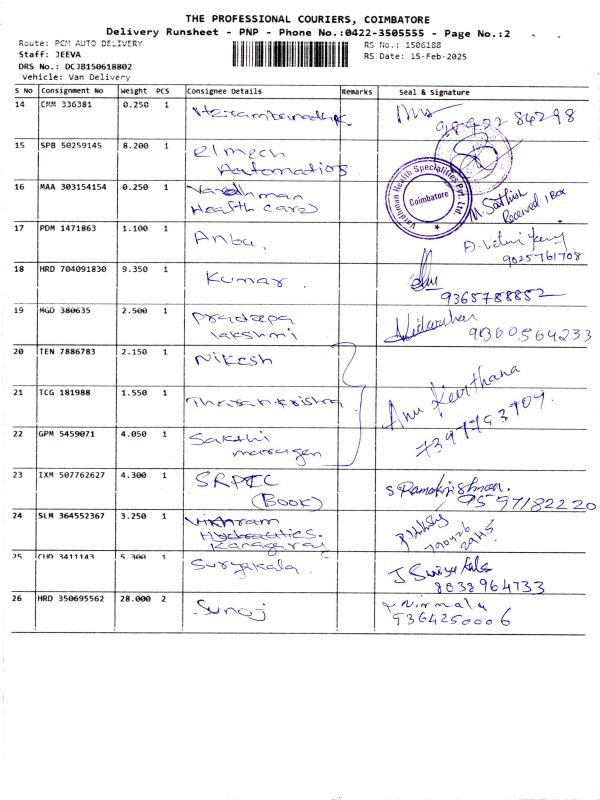 THE PROFESSIONAL COURIERS, COIMBATORE
Delivery Runsheet - PNP - Phone No.:0422-3505555 - Page No.:2
Route: PCM AUTO DELIVERY
RS No.: 1506188
Staff: JEEVA
RS Date: 15-Feb-2025
DRS No.: DCJB150618802
Vehicle: Van Delivery
S No Consignment No Weight PCS Consignee Details Remarks Seal & Signature
14 CMM 336381 0.250 1
15 SPB 50259145 8.200 1 elmech
Automations
16 MAA 303154154 0.250 1 Vardhman
Health care)
Vardhman Health Specialities Pvt. Ltd.
Coimbatore
M. Sathish
Received 1 Box
17 PDM 1471863 1.100 1 Anbu.
9025761708
18 HRD 704091830 9.350 1 Kumar.
9365788852
19 MGD 380635 2.500 1 Pradeepa
lakshmi
9360564233
20 TEN 7886783 2.150 1 Nikesh
21 TCG 181988 1.550 1 Tharanikrishna
Anu Keerthana
7397753909.
22 GPM 5459071 4.050 1 Sakthi
murugan
23 IXM 507762627 4.300 1 SRPTC
(Book)
S Ramakrishnan.
9597182220
24 SLM 364552367 3.250 1 Vikhram
Hydraulics.
25 CUD 3411143 5.300 1 Suryakala.
8838964733
26 HRD 350695562 28.000 2 Suraj
Nirmala
9364250006